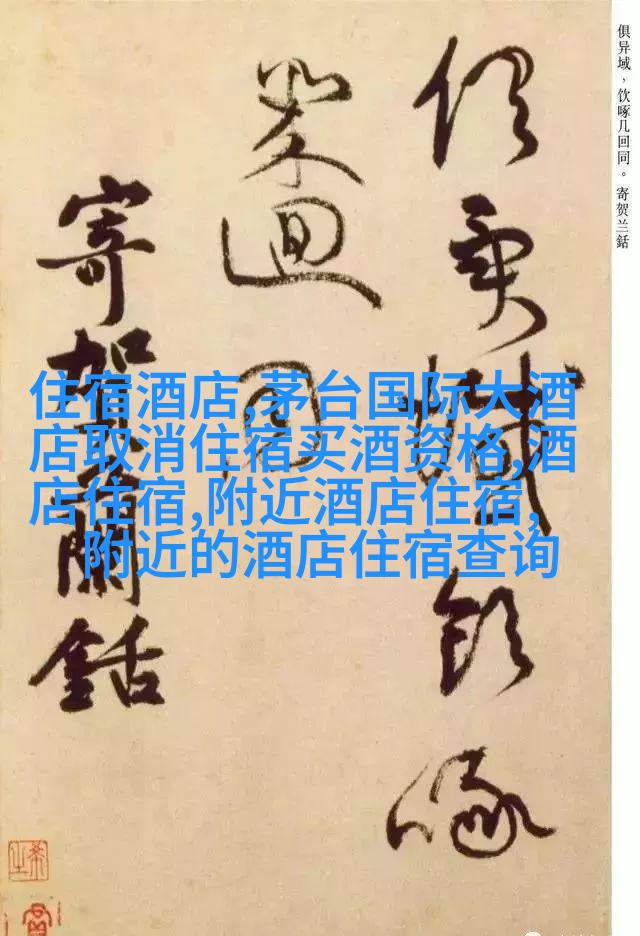 俱异域，饮啄几回同。寄贺兰銛
俱異域飲啄
幾迴同
寄賀蘭銛
住宿酒店,茅台国际大酒
店取消住宿买酒资格,酒
店住宿,附近酒店住宿,
附近的酒店住宿查询